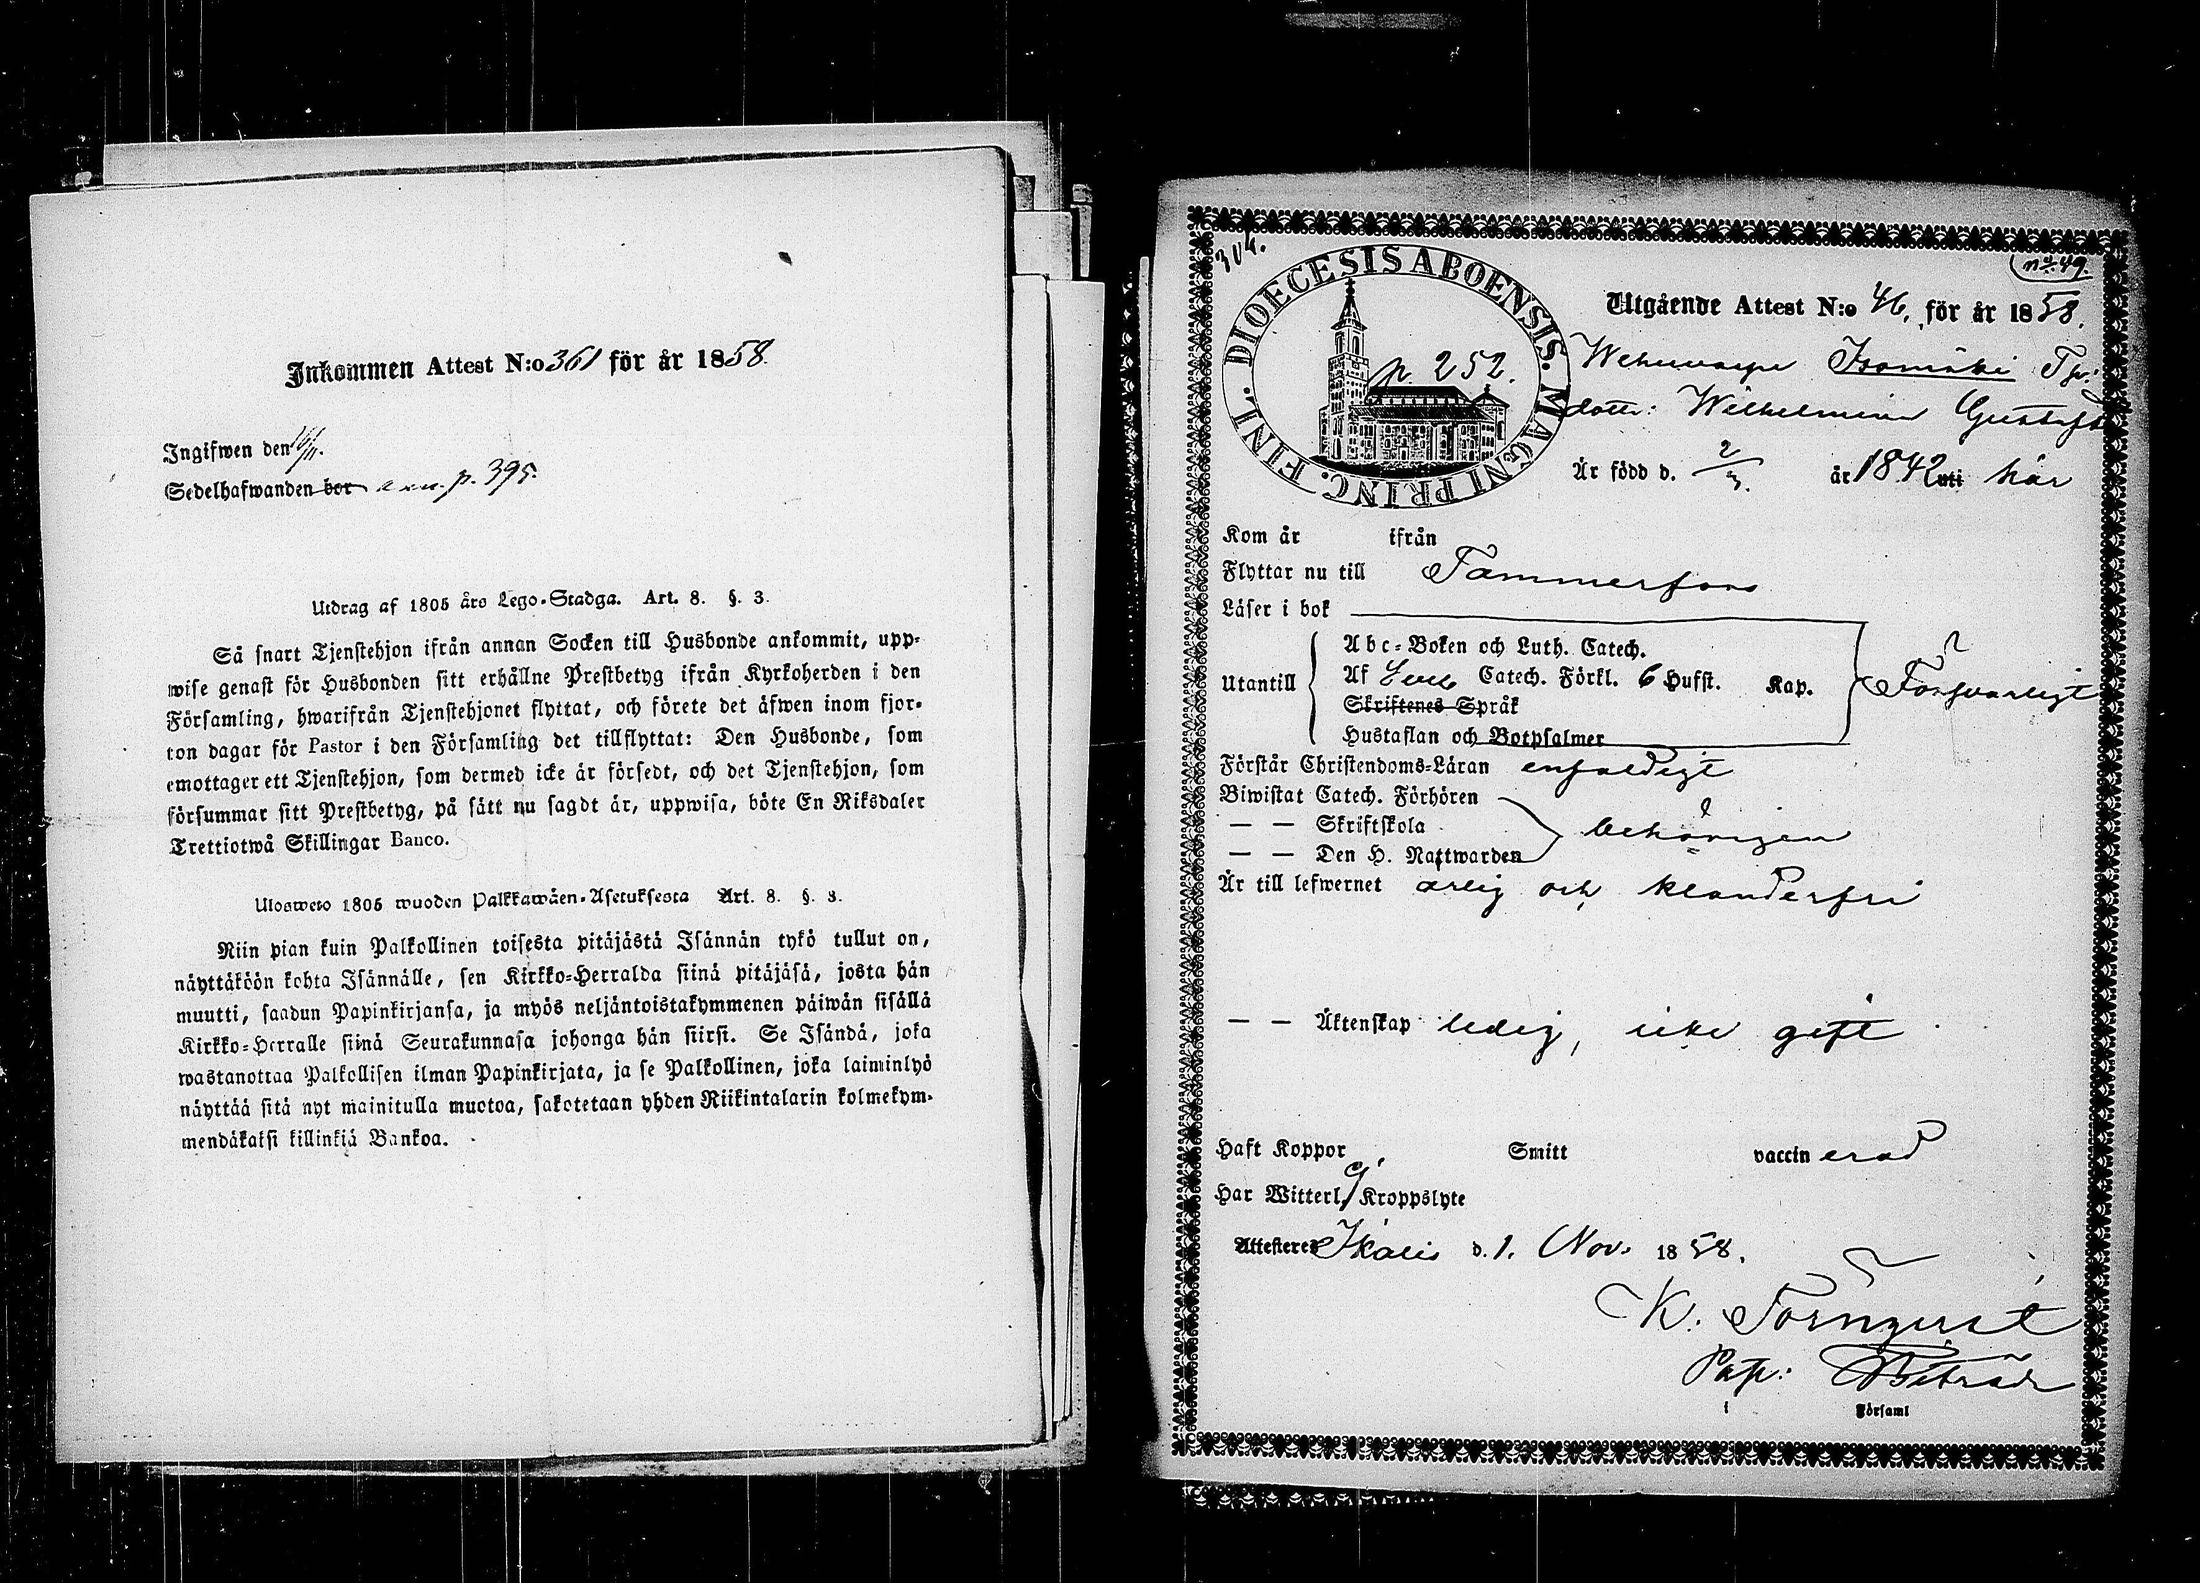 Inkommen Attest N:o 361 för år 1858.
Ingifwen den 16/11.
Sedelhafwanden bor ann. p. 395.
Utdrag af 1805 års Lego-Stadga. Art. 8. §. 3.
Så snart Tjenstehjon ifrån annan Socken till Husbonde ankommit, upp-
wise genast för Husbonden sitt erhållne Prestbetyg ifrån Kyrkoherden i den
Församling, hwarifrån Tjenstehjonet flyttat, och förete det äfwen inom fjor-
ton dagar för Pastor i den Församling det tillflyttat: Den Husbonde, som
emottager ett Tjenstehjon, som dermed icke är försedt, och det Tjenstehjon, som
försummar sitt Prestbetyg, på sätt nu sagdt är, uppwisa, böte En Riksdaler
Trettiotwå Skillingar Banco.
Ulosweto 1805 wuoden Palkkawäen-Asetuksesta Art. 8. §. 3.
Niin pian kuin Palkollinen toisesta pitäjästä Isännän tykö tullut on,
näyttäköön kohta Isännälle, sen Kirkko-Herralda siinä pitäjäsä, josta hän
muutti, saadun Papinkirjansa, ja myös neljäntoistakymmenen päiwän sisällä
Kirkko-Herralle siinä Seurakunnasa johonga hän siirsi. Se Isändä, joka
wastanottaa Palkollisen ilman Papinkirjata, ja se Palkollinen, joka laiminlyö
näyttää sitä nyt mainitulla muotoa, sakotetaan yhden Riikintalarin kolmekym-
mendäkaksi killinkiä Bankoa.
304.
no. 49.
DIOECESIS ABOENSIS. MAGNI PRINC. FINL.
p. 252.
Utgående Attest N:o 46, för år 1858.
Isomäki Tp:
dotter: Wilhelmina Gustafsd
Är född d. 2/3. år 1842 uti här
Kom år ifrån
Flyttar nu till Tammerfors
Läser i bok
Utantill
Abc-Boken och Luth. Catech.
Af Catech. Förkl. 6 Hufst. Kap.
Skriftenes Språk
Hustaflan och Botpsalmer
Försvarligt
Förstår Christendoms-Läran enfaldigt
Biwistat Catech. Förhören
— — Skriftskola
— — Den H. Nattwarden
behörigen
Är till lefwernet ärlig och klanderfri
— — Äktenskap ledig, icke gift
Haft Koppor Smitt vaccinerad
Har Witterl. Kroppslyte
Attesteres Ikalis d. 1. Nov. 1858.
K. Törnqvist
Past: Biträde
i Församl